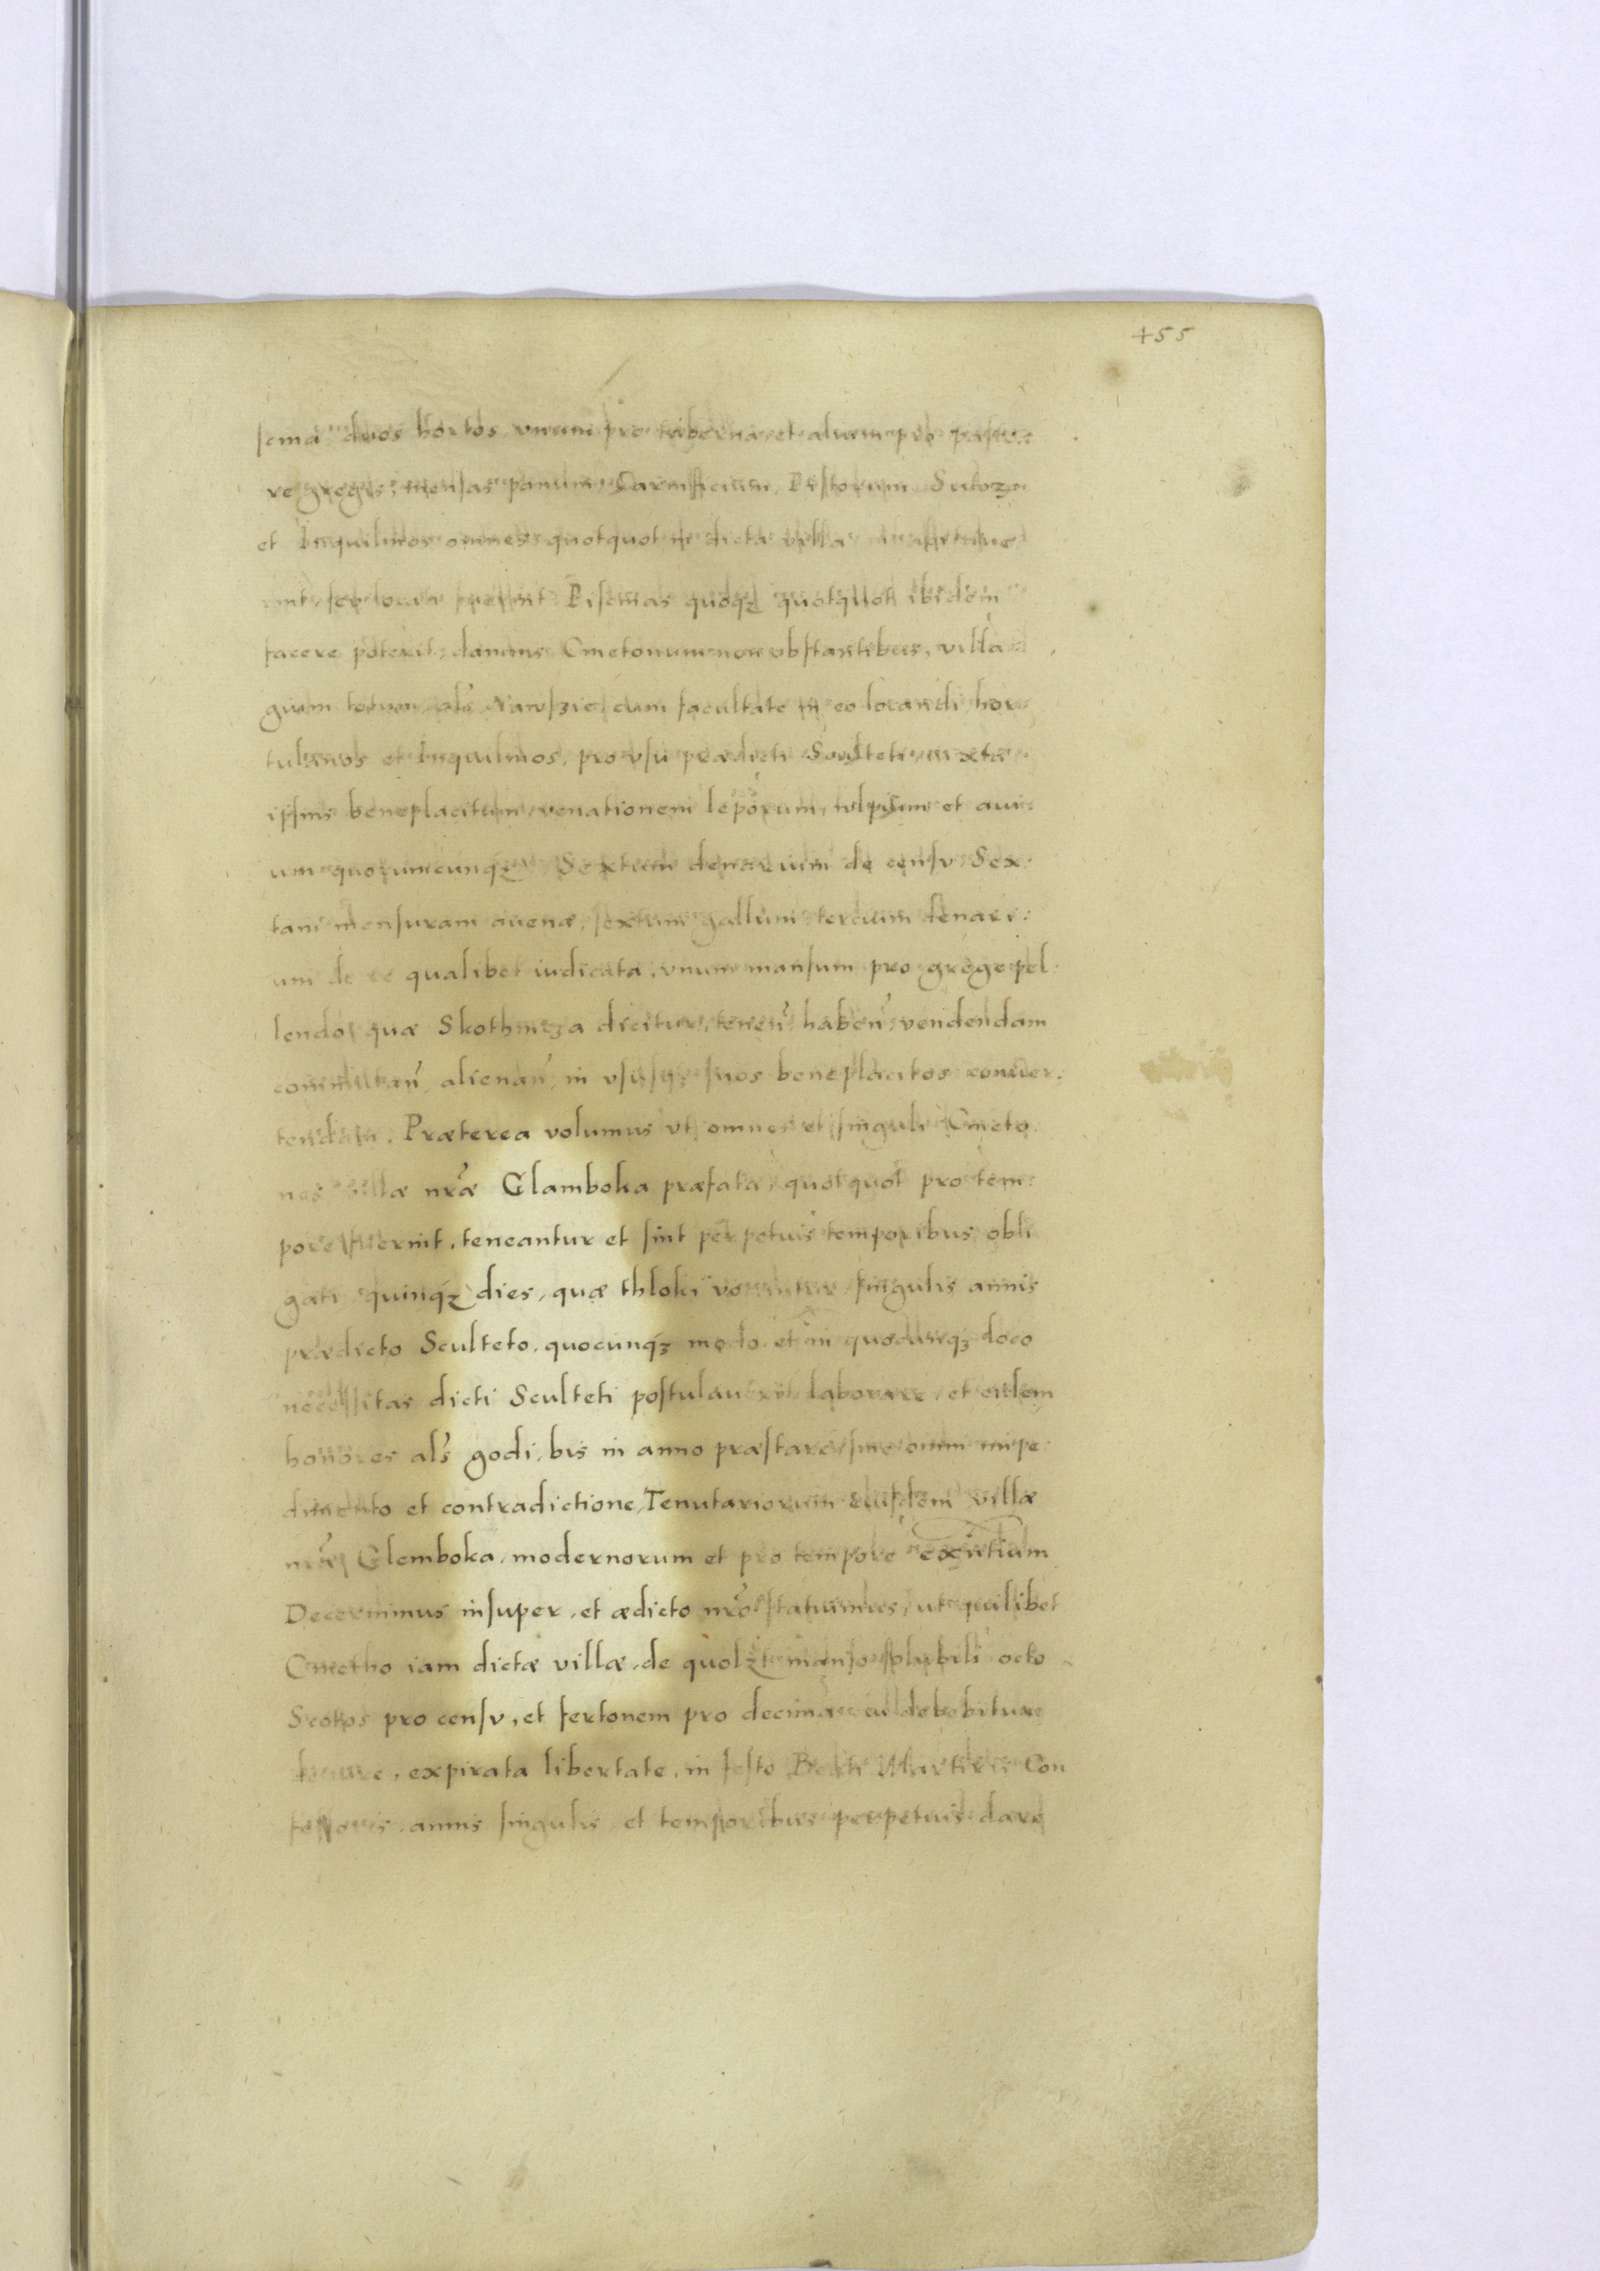 455
scina, duos hortos, unum pro taberna, et alium pro pasto
re gregis, mensas panum, Carnificium, Pistorum, Sutorum
et Inquilinos omnes quotquot in dicta villa
fuerint. Piscinas quoqꝫ quotquot ibidem
facere poterit, damnis Cmetonum non obstantibus, villa
gium totum als Nawszie cum facultate in eo locandi hor
tulanos et Inquilinos, pro vsu prædicti Sculteti iuxta
ipsius beneplacitum, venationem leporum, vulpium et aui
um quorumcunqꝫ Sextum denarium de censu Sex
tam mensuram auenæ, sextum gallum tercium denari:
um de re qualibet iudicata, vnum mansum pro grege pel
lendo, quæ Skothnicza dicitur, tenen̄ haben̄ vendendam
commutan̄ alienan̄ in vsusqꝫ suos beneplacitos conuer:
tendam. Præterea volumus vt omnes et singuli Cmeto
nes villæ nr̄æ Glamboka præfatæ, quotquot pro tem:
pore fuerint, teneantur et sint perpetuis temporibus obli
gati quinqꝫ dies, quæ thloki vocantur singulis annis
prædicto Sculteto, quocunqꝫ modo et in quocunqꝫ loco
necessitas dicti Sculteti postulauerit laborare, et eidem
honores als godi, bis in anno præstare sine omni impe
dimento et contradictione, Tenutariorum eiusdem villæ
nr̄æ Glemboka, modernorum et pro tempore existentium
Decernimus insuper, et ædicto nr̄o statuimus, ut quilibet
Cmetho iam dictæ villæ, de quolꝫt manso octo
Scotos pro censu, et fertonem pro decima cui debebitur
expirata libertate, in festo Beati Martini Con
fessoris, annis singulis et temporibus perpetuis dare